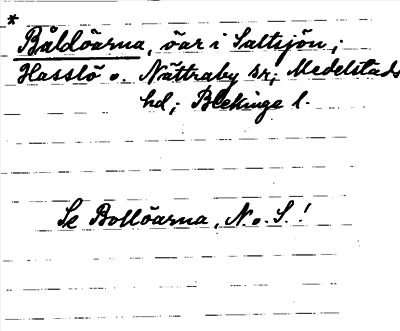 *
Båldöarna, öar i Saltsjön;
Hasslö o. Nättraby sr; Medelstads
hd; Blekinge l.
Se Bollöarna, N. o. S.!